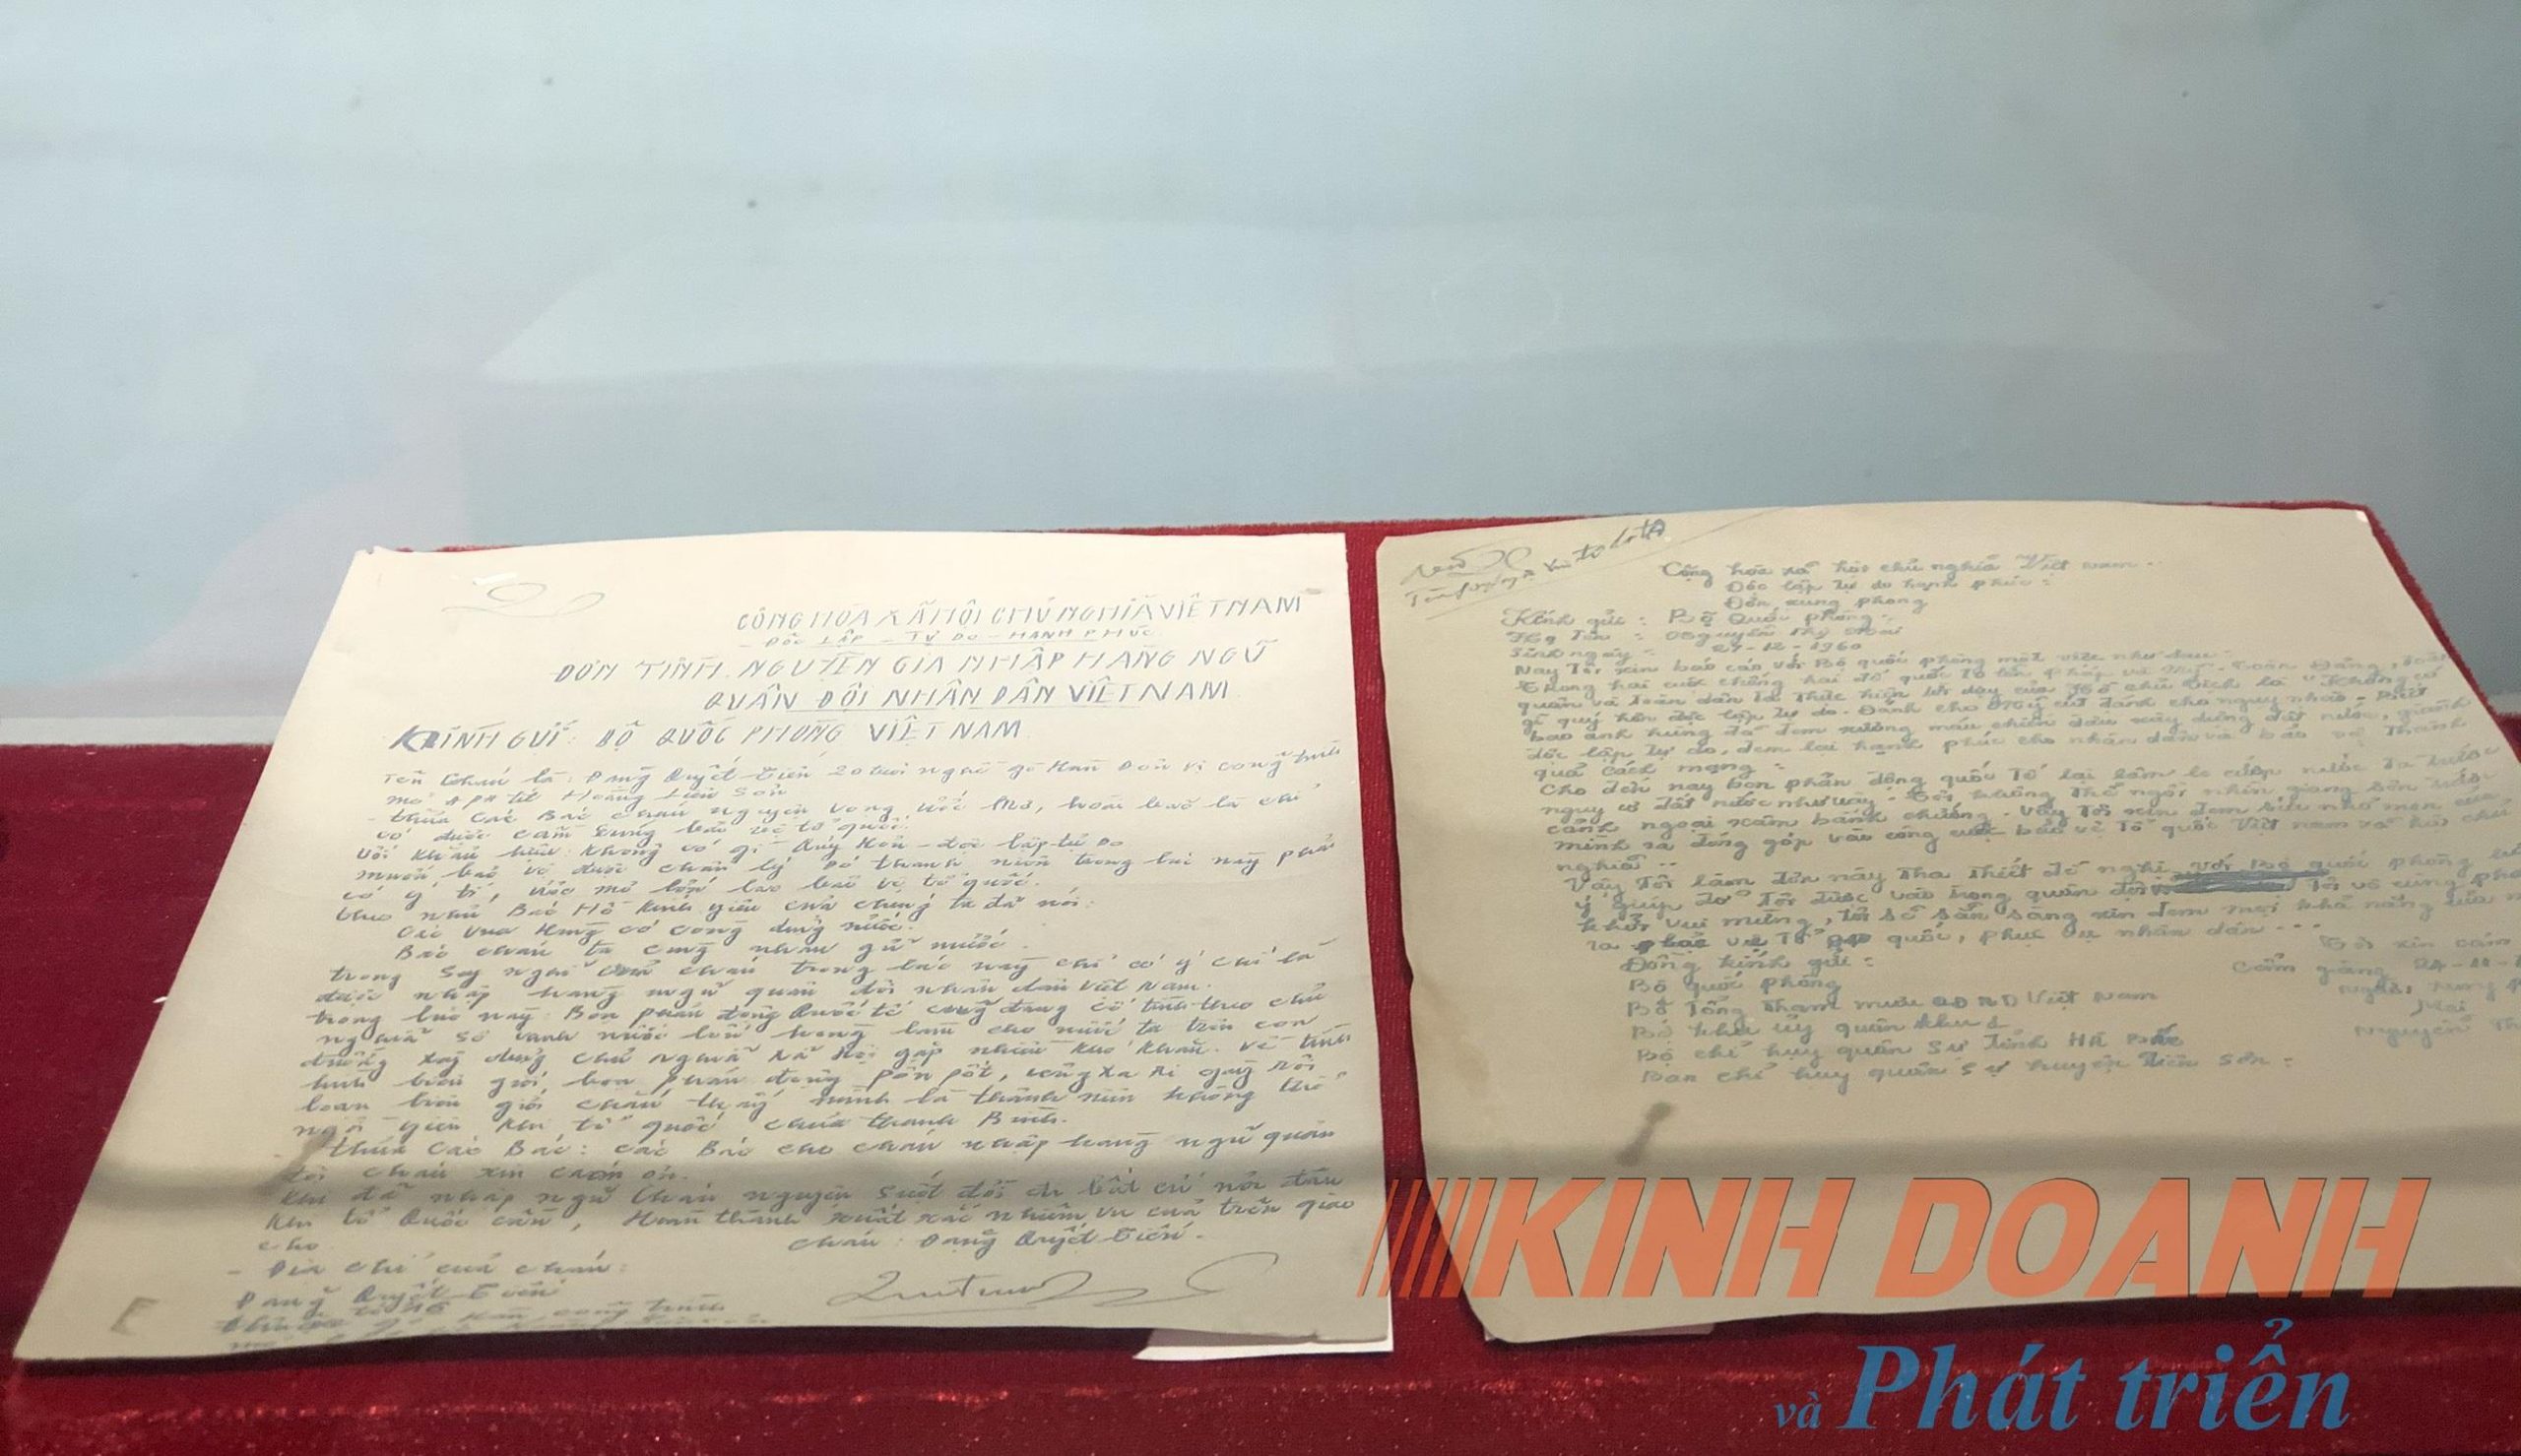 CÔNG HÒA XÃ HỘI CHỦ NGHĨA VIỆT NAM
ĐỘC LẬP - TỰ DO - HẠNH PHÚC
ĐƠN TÌNH NGUYỆN GIA NHẬP HÀNG NGŨ
QUÂN ĐỘI NHÂN DÂN VIỆT NAM
KÍNH GỬI: BỘ QUỐC PHÒNG VIỆT NAM
Tên Cháu là: Đặng Quyết Tiến 20 tuổi nghề gò Hàn Đơn vị công trình
mỏ Hoàng Liên Sơn
- thưa Các Bác cháu nguyện vọng, ước Mơ, hoài bão là chỉ
có được cầm súng bảo vệ tổ quốc.
Với khẩu hiệu: không có gì Quý Hơn - độc lập - tự Do
muốn bảo vệ được chân lý đó thanh niên trong lúc này phải
có ý trí, ước mơ lớn lao bảo vệ tổ quốc.
như Bác Hồ kính yêu của chúng ta đã nói:
Các Vua Hùng có công dựng nước.
Bác cháu ta cùng nhau giữ nước.
trong suy nghĩ của cháu trong lúc này chỉ có ý chí là
được nhập hàng ngũ quân đội nhân dân Việt Nam.
trong lúc này: Bọn phản động Quốc tế cũng đang cố tình theo chủ
nghĩa sô vanh nước lớn hòng làm cho nước ta trên con
đường xây dựng chủ nghĩa xã hội gặp nhiều khó khăn. Về tình
hình biên giới, bọn phản động pôn pốt, iêng xa ri gây rối
loạn biên giới cháu thấy mình là thanh niên không thể
ngồi yên khi tổ quốc chưa thanh Bình.
- thưa Các Bác: các Bác cho cháu nhập hàng ngũ quân
đội cháu xin cảm ơn.
Khi đã nhập ngũ Cháu nguyện suốt đời đi bất cứ nơi đâu
khi tổ Quốc cần, Hoàn thành xuất sắc nhiệm vụ của trên giao
cho
cháu: Đặng Quyết Tiến.
- Địa chỉ của cháu:
Đặng Quyết Tiến
Cộng hòa xã hội chủ nghĩa Việt nam
Độc lập tự do hạnh phúc:
Đơn xung phong
Kính gửi: Bộ Quốc phòng
Họ Tên: Nguyễn Thị Mai
Sinh ngày: 27-12-1960
Nay Tôi xin báo cáo với Bộ quốc phòng một việc như sau:
Trong hai cuộc chống hai đế quốc To lớn Pháp và Mỹ. Toàn Đảng,
quân và toàn dân ta thực hiện lời dạy của Hồ chủ tịch là "Không có
gì quý hơn độc lập tự do. Đánh cho Mỹ cút đánh cho ngụy nhào - Biết
bao anh hùng đã đem xương máu chiến đấu xây dựng đất nước, giành
độc lập tự do, đem lại hạnh phúc cho nhân dân và bảo vệ Thành
quả cách mạng:
Cho đến nay bọn phản động quốc Tế lại lăm le cướp nước Ta trước
nguy cơ đất nước như vậy. Tôi không thể ngồi nhìn giang sơn
cảnh ngoại xâm bành chướng. Vậy Tôi xin đem sức nhỏ mọn của
mình ra đóng góp vào công cuộc bảo vệ Tổ quốc Việt nam xã hội chủ
nghĩa..
Vậy Tôi làm đơn này Tha Thiết đề nghị với Bộ quốc phòng
ý giúp đỡ Tôi được vào trong quân đội Tôi vô cùng
khởi vui mừng, Tôi sẽ sẵn sàng xin đem mọi khả năng của
ra bảo vệ Tổ quốc, phục vụ nhân dân...
Tôi xin cảm
Đồng kính gửi:
Cẩm giàng 24-
Bộ quốc phòng
Bộ Tổng Tham mưu QĐND Việt Nam
Mai
Bộ quân khu 1
Nguyễn Th
Bộ chỉ huy quân sự Tỉnh Hà Bắc
Ban chỉ huy quân sự huyện Tiên Sơn:
KINH DOANH
và Phát triển